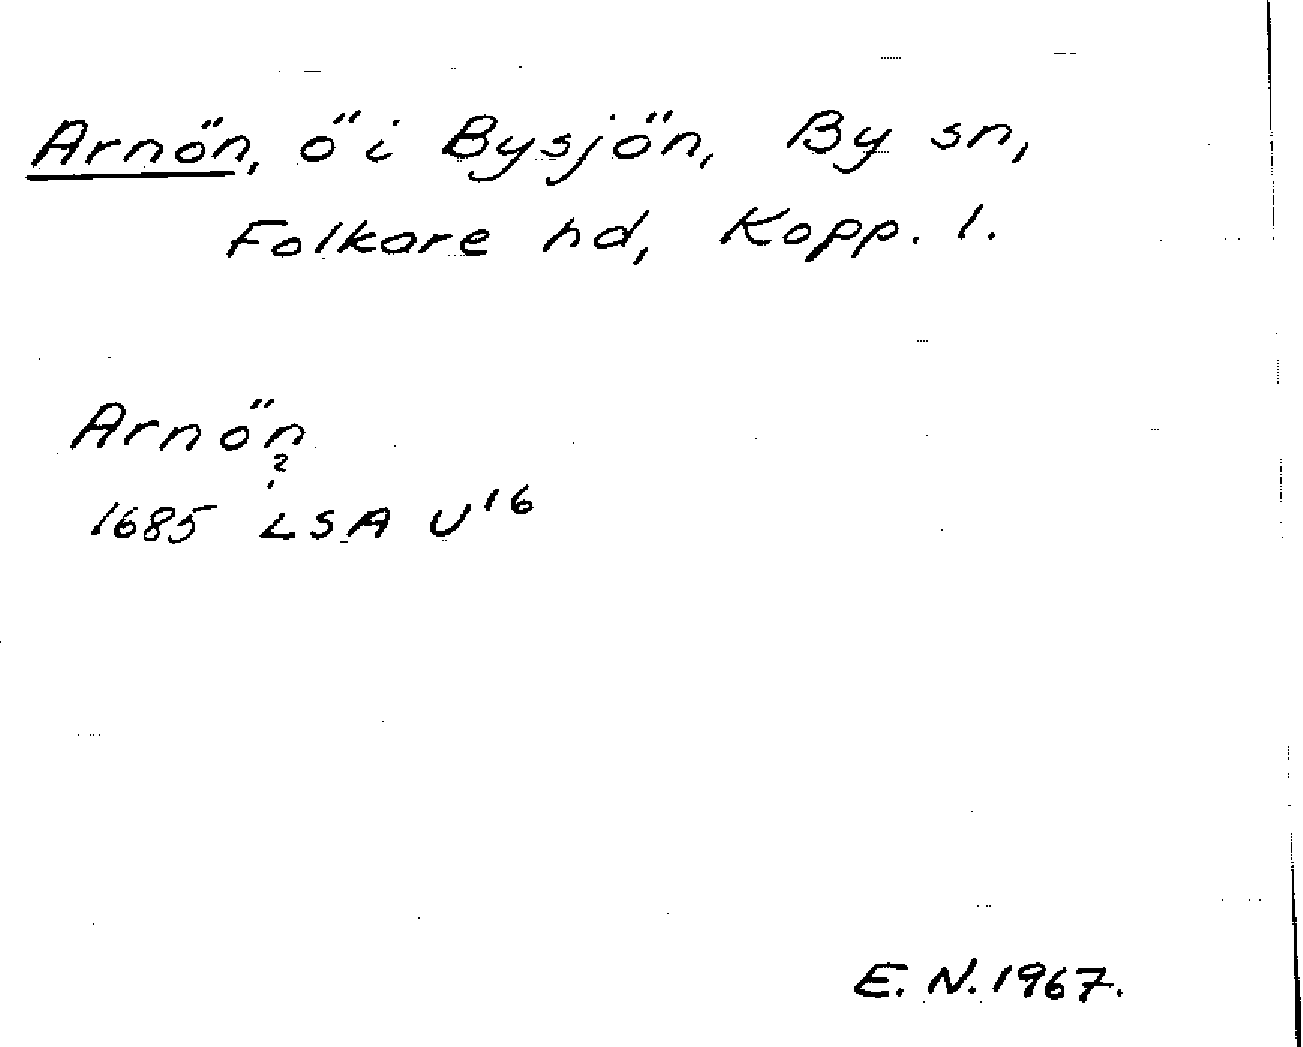 Arnön, ö i Bysjön, By sn,
Folkare hd, Kopp. l.
Arnön
2
1685 LSA U¹⁶
E. N. 1967.